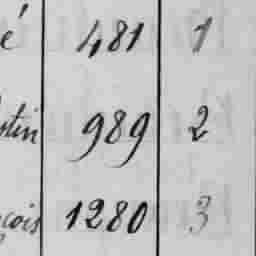 é 481 1
stin 989 2
çois 1280 3